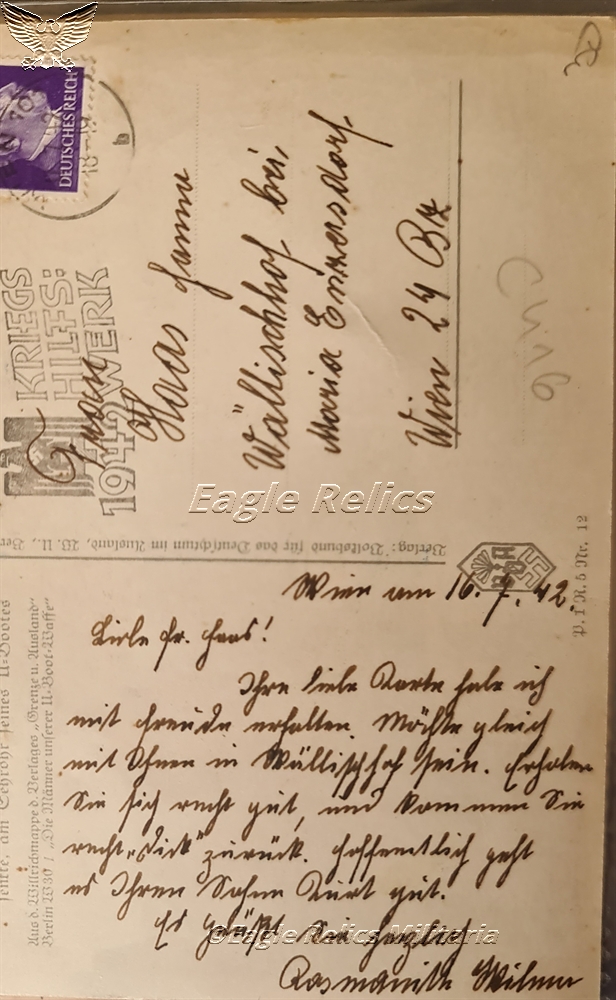 DEUTSCHES REICH
18-19
b
KRIEGS
HILFS:
WERK
1942
Frau
Haas Hanna
Wällischhof bei
Maria Enzersdorf
Wien 24 Btz
Eagle Relics
Verlag: Volksbund für das Deutschtum im Ausland, W. U., Ber
P. 1 R. 5 Nr. 12
am Sehrohr seines U-Bootes
Aus d. Willrichmappe d. Verlages „Grenze u. Ausland"
Berlin W30 / „Die Männer unserer U-Boot-Waffe"
Wien am 16. 7. 42.
Liebe Fr. Haas!
Ihre liebe Karte habe ich
mit Freude erhalten. Möchte gleich
mit Ihnen in Wällischhof sein. Erholen
Sie sich recht gut, und kommen Sie
recht „dick" zurück. Hoffentlich geht
es Ihrem Sohne Kurt gut.
Es grüßt Sie herzlich
©Eagle Relics Militaria